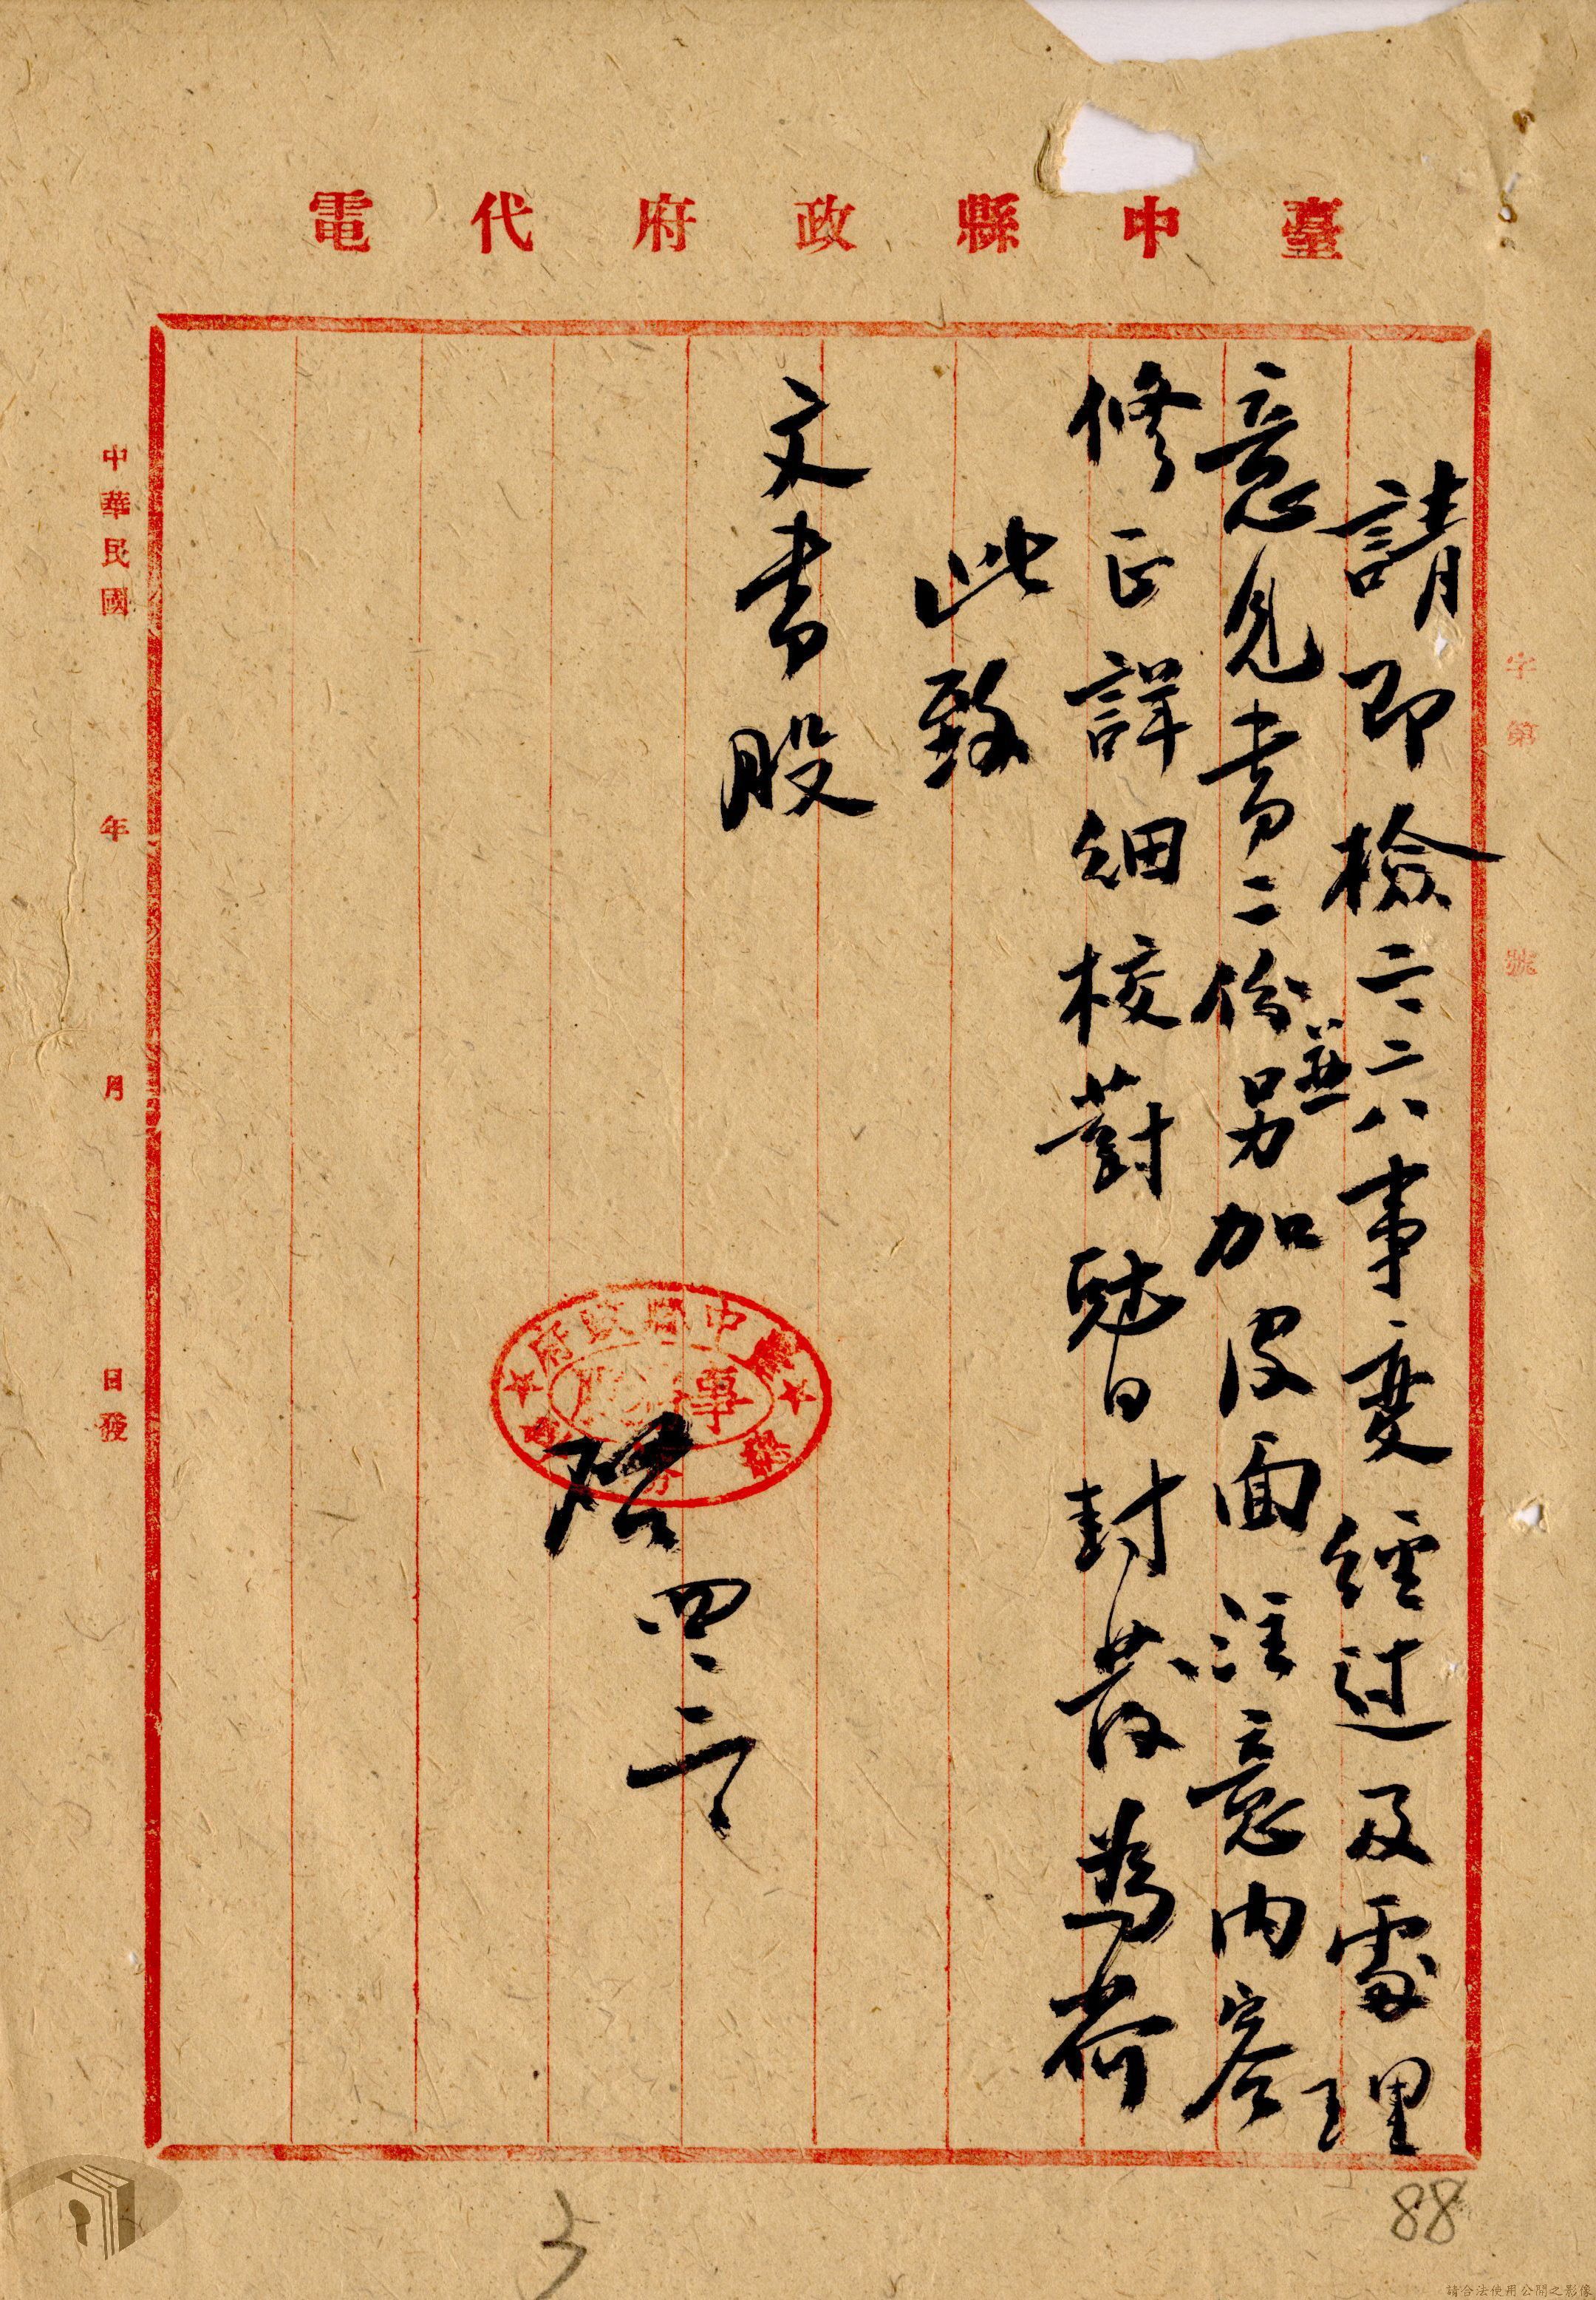 臺中縣政府代電
字第 號
請即檢二二八事變經过及處理
意見書二份並另加皮面注意內容
修正詳細校對尅日封發為荷
此致
文書股
臺中縣政府
四、
中華民國 年 月 日發
88
3
請合法使用公開之影像